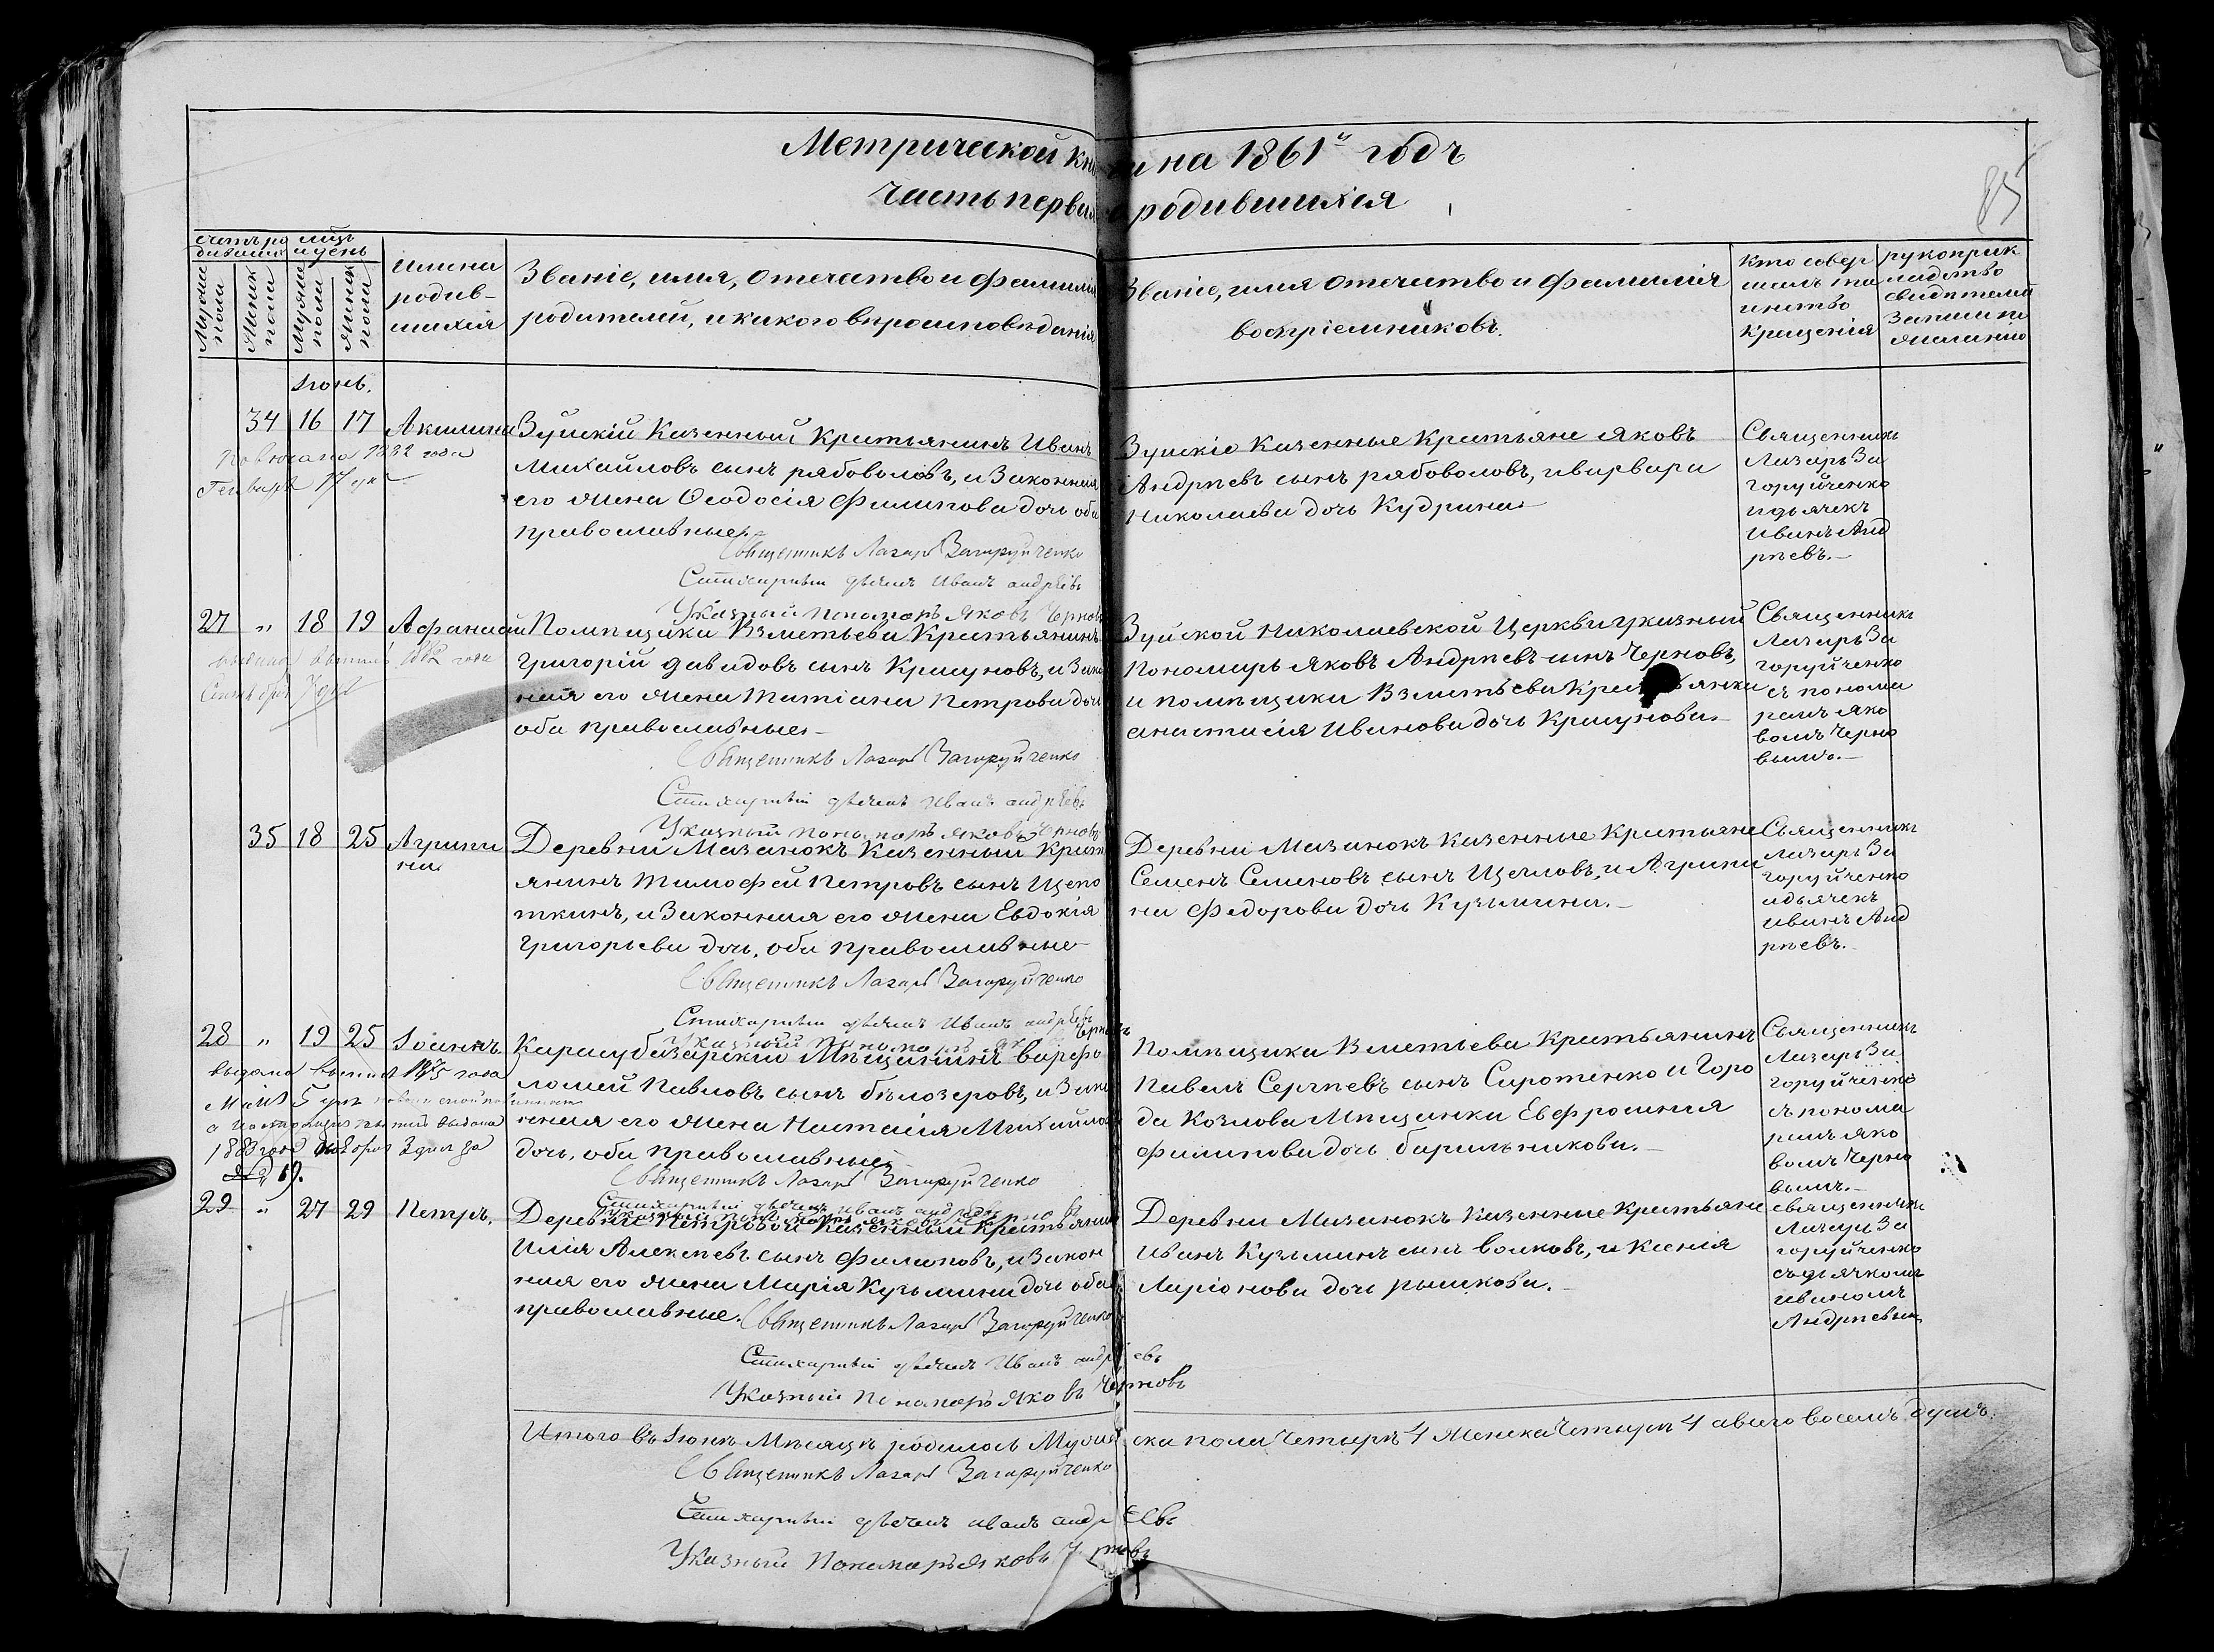 Метрической кни
ги на 1861й годъ
Часть первая
о родившихся
85
счетъ ро
дившихся
мцъ
и день
Мужеска пола
Женск пола
Мужеска пола
Женск пола
имена
родив-
шихся
Званіе, имя, отчество и фамилія
родителей, и какого вероисповеданія
Званіе, имя отчество и фамилія
воспріемниковъ.
Кто совер
шалъ та
инство
Крещенія
рукоприк
ладство
свидетелей
записи по
желанію
Іюнь.
34 16 17 Акилина
Зуйскій Казенный Крестьянинъ Иванъ
Михайловъ сынъ рябоволовъ, и Законная
его жена Ѳеодосія Филипова дочь оба
православные.
1882 года
Генваря 17 дня
Священникъ Лазарь Загоруйченко
Стихарный дьячекъ Иванъ андреевъ
Указный пономарь Яковъ Черновъ
Зуйскіе Казенные Крестьяне Яковъ
Андреевъ сынъ рябоволовъ, и варвара
Николаева дочь Кудрина
Священникъ
Лазарь За
горуйченко
и дьячекъ
Иванъ Анд
реевъ.
27 " 18 19 Афанасій
Помещика Взметьева Крестьянинъ
Григорій Давидовъ сынъ Крашуновъ, и Зако
ная его жена Татіана Петрова дочь
оба православные
года
Священникъ Лазарь Загоруйченко
Стихарный дьячекъ Иванъ андреевъ
Указный пономарь Яковъ Черновъ
Зуйской Николаевской Церкви указный
Пономарь Яковъ Андреевъ сынъ Черновъ,
и помещика Взметьева Крестьянки
анастасія Иванова дочь Крашунова
Священникъ
Лазарь За
горуйченко
съ понома
ремъ Яко
вомъ Черно
вымъ.
35 18 25 Агрипи
на
Деревни Мазанокъ Казенный Крест
янинъ Тимофей Петровъ сынъ Щепо
ткинъ, и Законная его жена Евдокія
Григорьева дочь, оба православные
Священникъ Лазарь Загоруйченко
Стихарный дьячекъ Иванъ андреевъ
Указный пономарь Яковъ Черновъ
Деревни Мазанокъ Казенные Крестьяне
Семенъ Семеновъ сынъ Щегловъ, и Агрипи
на Федорова дочь Кузьмина.
Священникъ
Лазарь За
горуйченко
и дьячекъ
Иванъ Анд
реевъ.
28 " 19 25 Іоаннъ.
Карасубазарскій Мещанинъ варфо
ломей Павловъ сынъ белозеровъ, и Зако
нная его жена Настасія Михайлова
дочь, оба православные
выдана выпись 1875 года
Маія 5 дня
Священникъ Лазарь Загоруйченко
Стихарный дьячекъ Иванъ андреевъ
Помещика Взметьева Крестьянинъ
Павелъ Сергеевъ сынъ Сиротенко и Горо
да Козлова Мещанка Евфросинія
Филипова дочь барильникова.
Священникъ
Лазарь За
горуйченко
съ понома
ремъ Яко
вомъ Черно
вымъ.
29 " 27 29 Петръ.
Деревни Петровой Казенный Крестьянинъ
Илія Алексеевъ сынъ Филиповъ, и Закон
ная его жена Марія Кузьмина дочь оба
православные.
Священникъ Лазарь Загоруйченко
Стихарный дьячекъ Иванъ андреевъ
Указный Пономарь Яковъ Черновъ
Деревни Мазанокъ Казенные Крестьяне
Иванъ Кузьминъ сынъ волковъ, и Ксенія
Ларіонова дочь рышкова.
священникъ
Лазарь За
горуйченко
съ дьячкомъ
Иваномъ
Андреевымъ
Итого въ Іюне Месяце родилось Мужеска пола Четыре 4 Женска Четыре 4 а всего восемь душъ.
Священникъ Лазарь Загоруйченко
Стихарный дьячекъ Иванъ андреевъ
Указный Пономарь Яковъ Черновъ